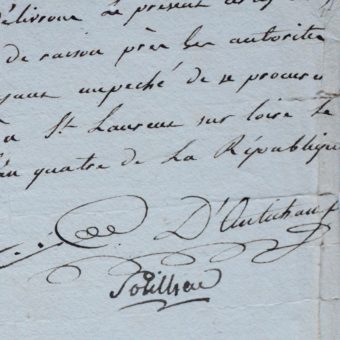 délivrons Le présent
de raison près les autorités
ayant empeché de se procurer
a St. Laurent sur loire Le
an quatre de La République
D'Autichamp